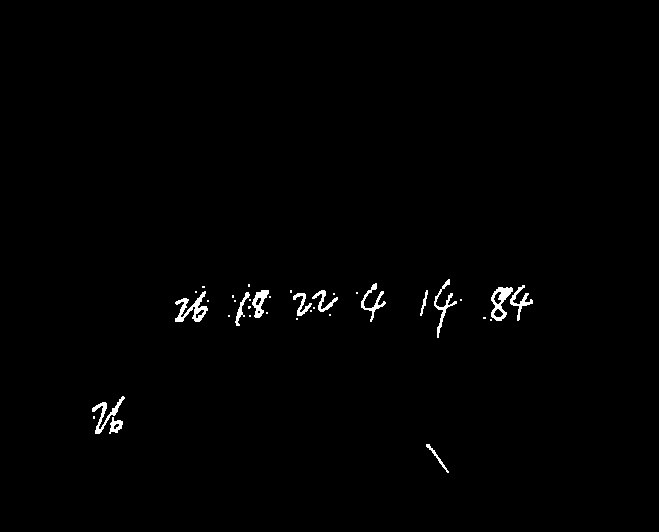 26 18 22 4 14 84
26